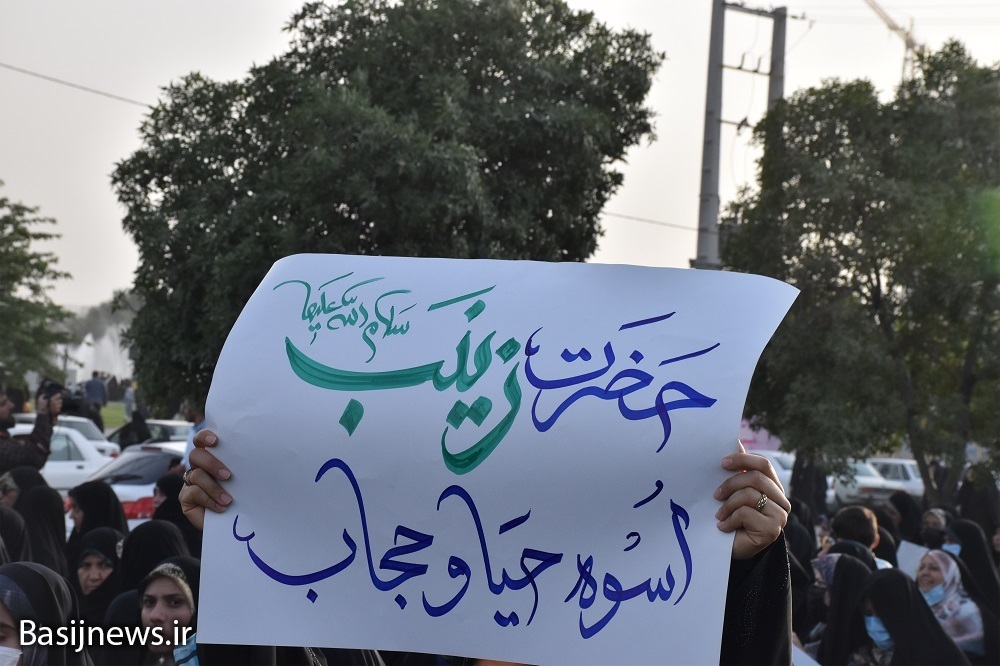 حضرت زینب سلام الله علیها
اُسوه حیا و حجاب
Basijnews.ir